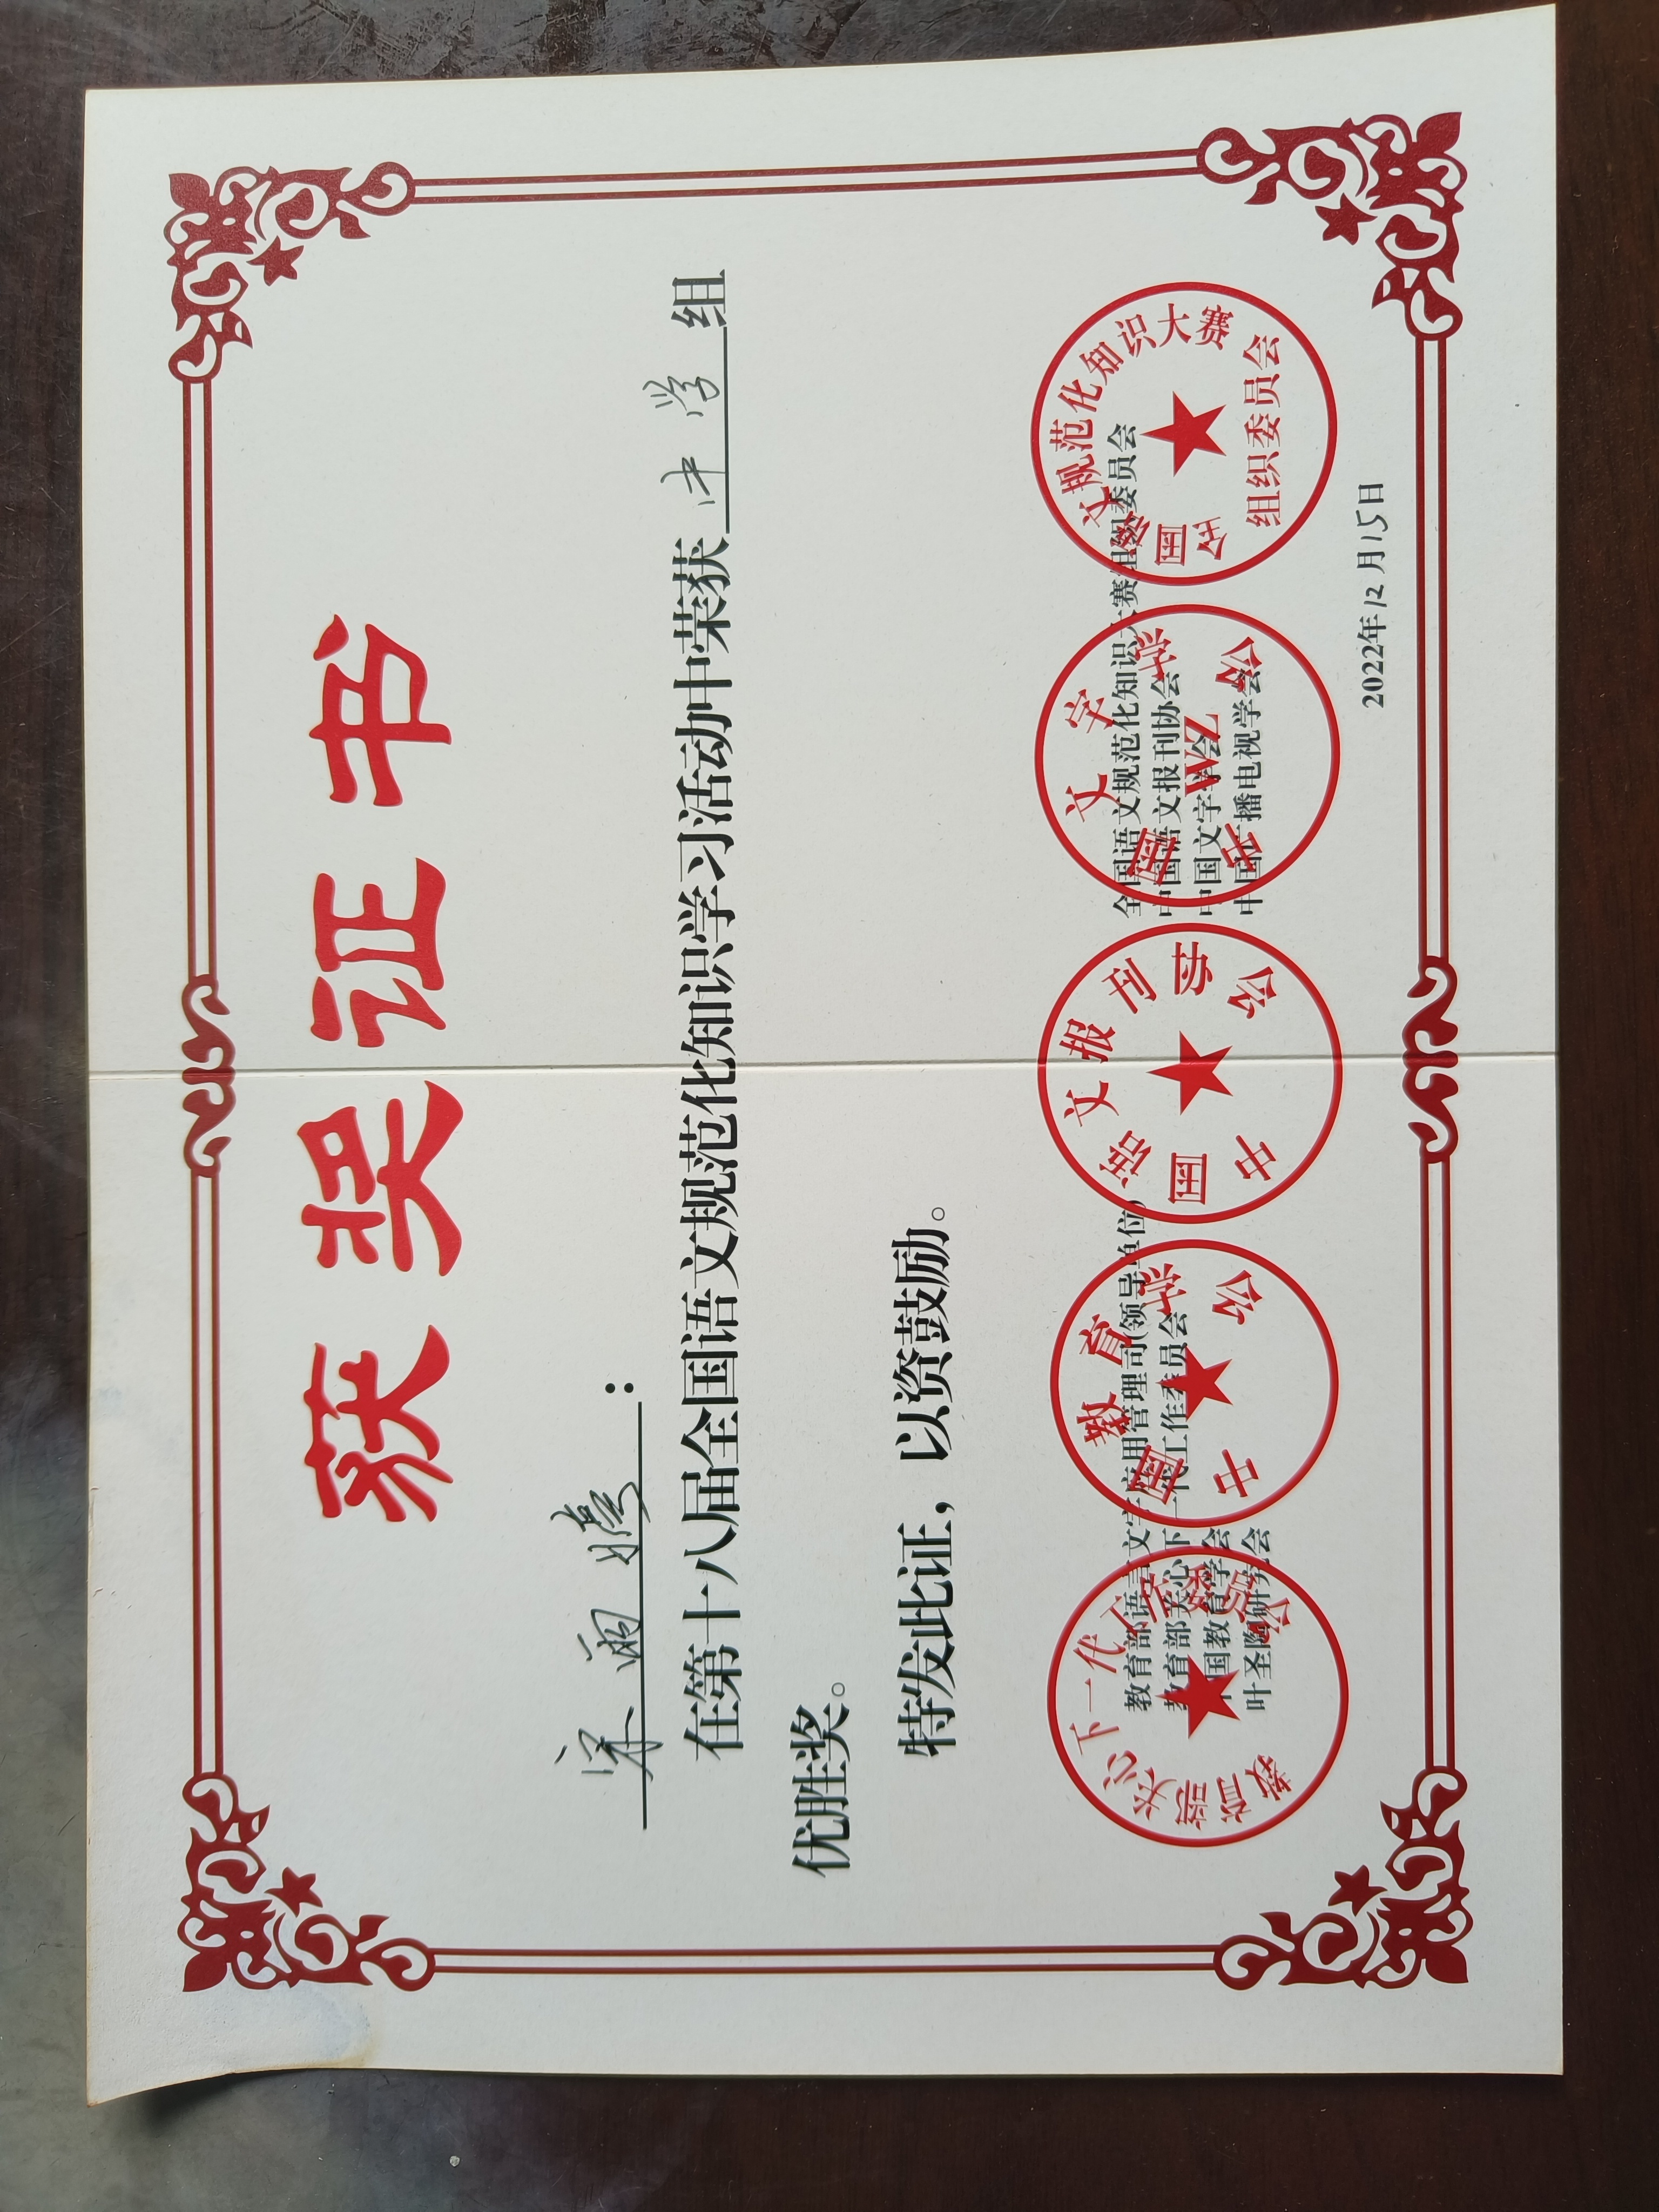 获奖证书
梁雨曦：
在第十八届全国语文规范化知识学习活动中荣获 中学 组
优胜奖。
特发此证，以资鼓励。
教育部语言文字应用管理司(领导单位)
教育部关心下一代工作委员会
中国教育学会
叶圣陶研究会
全国语文规范化知识大赛组织委员会
中国语文报刊协会
中国文字学会
中国广播电视学会
教育部关心下一代工作委员会
中国教育学会
中国语文报刊协会
中国文字学会
WZ
全国语文规范化知识大赛
组织委员会
2022年12月15日